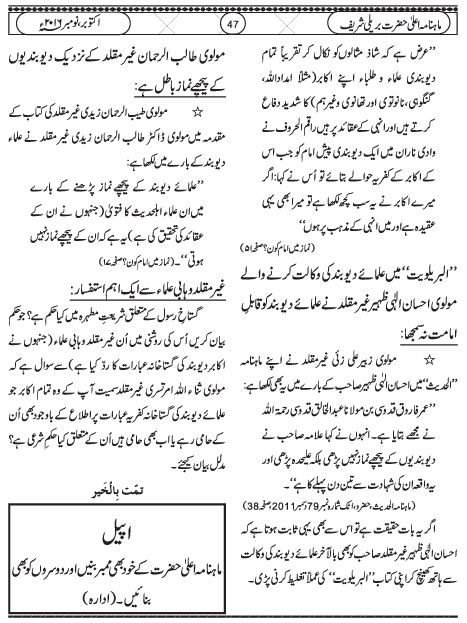 ماہنامہ اعلیٰ حضرت بریلی شریف
47
اکتوبر، نومبر ۲۰۱۶ء
”عرض ہے کہ شاذ مثالوں کو نکال کر تقریباً تمام
دیوبندی علماء و طلباء اپنے اکابر (مثلاً امداد اللہ،
گنگوہی، نانوتوی اور تھانوی وغیرہم) کا شدید دفاع
کرتے ہیں اور انہی کے عقائد پر ہیں راقم الحروف نے
وادی ناران میں ایک دیوبندی پیش امام کو جب اس
کے اکابر کے کفریہ حوالے بتائے تو اُس نے کہا: اگر
میرے اکابر نے یہ سب کچھ لکھا ہے تو میرا بھی یہی
عقیدہ ہے اور میں انہی کے مذہب پر ہوں“
(نماز میں امام کون؟ صفحہ ۵۱)
”البریلویت“ میں علمائے دیوبند کی وکالت کرنے والے
مولوی احسان الٰہی ظہیر غیر مقلد نے علمائے دیوبند کو قابلِ
امامت نہ سمجھا:
☆ مولوی زبیر علی زئی غیر مقلد نے اپنے ماہنامہ
”الحدیث“ میں احسان الٰہی ظہیر صاحب کے بارے میں یہ بھی لکھا ہے:
”عمر فاروق قدوسی بن مولانا عبدالخالق قدوسی رحمۃ اللہ
نے مجھے بتایا ہے۔ انہوں نے کہا علامہ صاحب نے
دیوبندیوں کے پیچھے نماز نہیں پڑھی بلکہ علیحدہ پڑھی اور
یہ واقعہ ان کی شہادت سے تین دن پہلے کا ہے“۔
(ماہنامہ الحدیث، حضرو، اٹک شمارہ نمبر 79 دسمبر 2011، صفحہ 38)
اگر یہ بات حقیقت ہے تو اس سے بھی یہی ثابت ہوتا ہے کہ
احسان الٰہی ظہیر غیر مقلد صاحب کو بھی بالآخر علمائے دیوبند کی وکالت
سے ہاتھ کھینچ کر اپنی کتاب ”البریلویت“ کی عملاً تغلیط کرنی پڑی۔
مولوی طالب الرحمان غیر مقلد کے نزدیک دیوبندیوں
کے پیچھے نماز باطل ہے:
☆ مولوی طیب الرحمان زیدی غیر مقلد کی کتاب کے
مقدمہ میں مولوی ڈاکٹر طالب الرحمان زیدی غیر مقلد نے علماء
دیوبند کے بارے میں لکھا ہے:
”علمائے دیوبند کے پیچھے نماز پڑھنے کے بارے
میں ان علماء اہلحدیث کا فتویٰ (جنہوں نے ان کے
عقائد کی تحقیق کی ہے) یہ ہے کہ ان کے پیچھے نماز نہیں
ہوتی“۔ (نماز میں امام کون؟ صفحہ ۱۷)
غیر مقلد وہابی علماء سے ایک اہم استفسار:
گستاخِ رسول کے متعلق شریعتِ مطہرہ میں کیا حکم ہے؟ جو حکم
بیان کریں اُس کی روشنی میں اُن غیر مقلد وہابی علماء (جنہوں نے
اکابر دیوبند کی گستاخانہ عبارات کا ردّ کیا ہے) سے سوال ہے کہ
مولوی ثناء اللہ امرتسری غیر مقلد سمیت آپ کے وہ تمام اکابر جو
علمائے دیوبند کی گستاخانہ کفریہ عبارات پر اطلاع کے باوجود بھی اُن
کے حامی رہے یا اب بھی حامی ہیں اُن کے متعلق کیا حکمِ شرعی ہے؟
مدلل بیان کیجئے۔
تمّت بِالْخَیر
اپیل
ماہنامہ اعلیٰ حضرت کے خود بھی ممبر بنیں اور دوسروں کو بھی
بنائیں۔ (ادارہ)